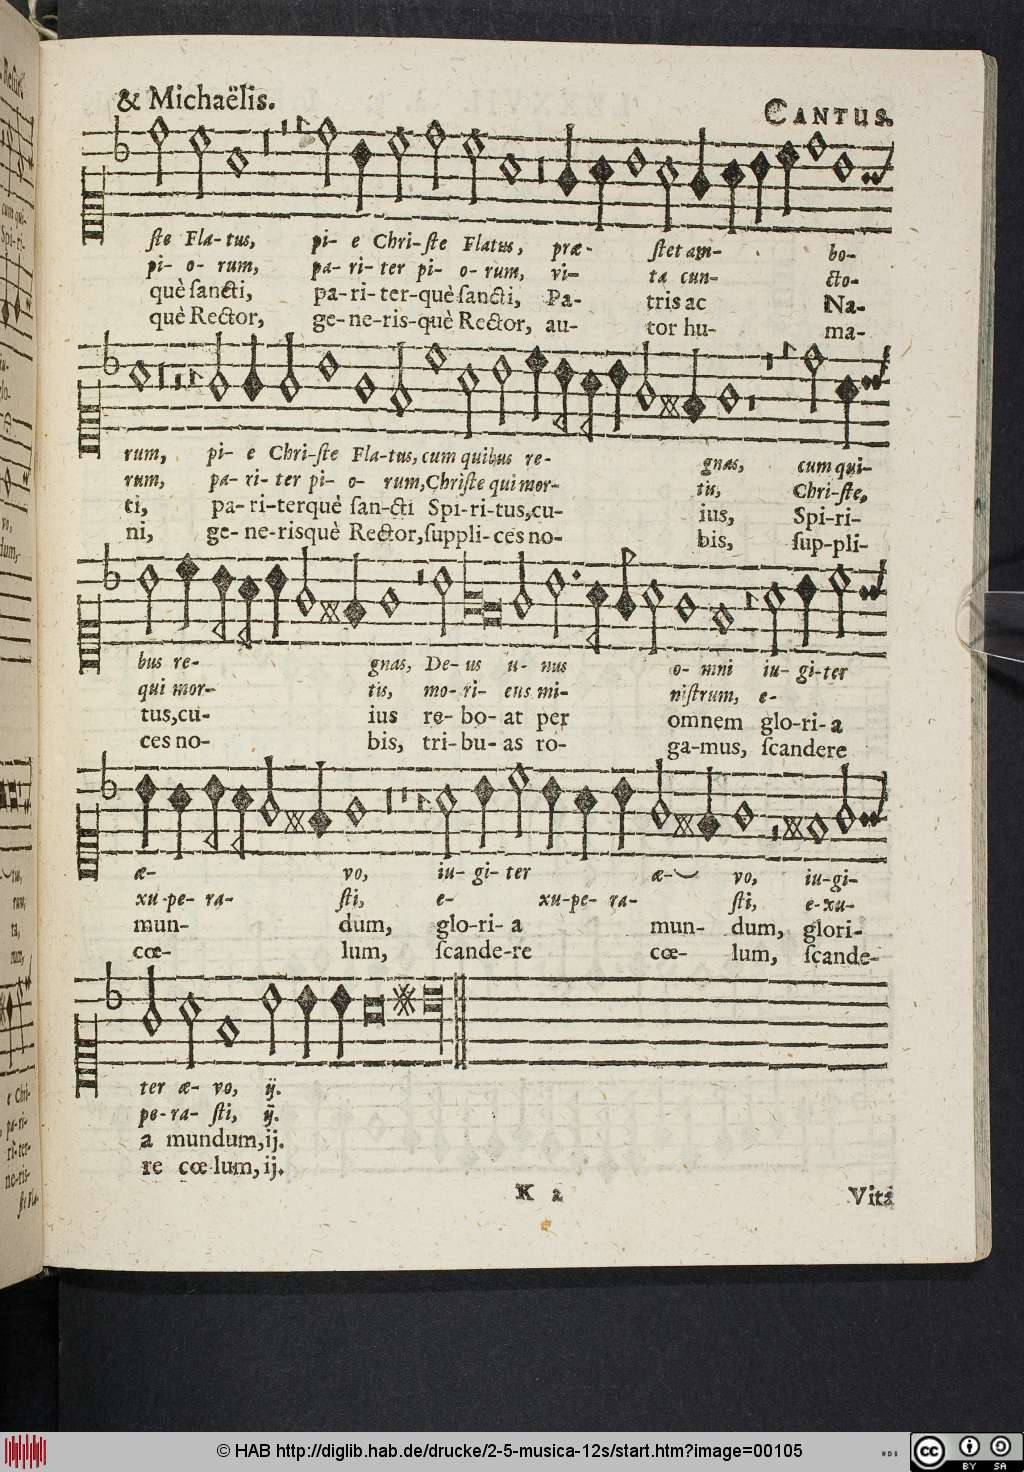 & Michaëlis.
CANTUS.
ſte Fla- tus, pi- e Chri- ſte Flatus, præ- ſtet am- bo-
pi- o- rum, pa- ri- ter pi- o- rum, vi- ta cun- cto-
què ſancti, pa- ri- ter- què ſancti, Pa- tris ac Na-
què Rector, ge- ne- ris- què Rector, au- tor hu- ma-
rum, pi- e Chri- ſte Fla- tus, cum quibus re- gnas, cum qui-
rum, pa- ri- ter pi- o- rum, Chriſte qui mor- tis, Chri- ſte,
ti, pa- ri- terquè ſan- cti Spi- ri- tus, cu- ius, Spi- ri-
ni, ge- ne- risquè Rector, ſuppli- ces no- bis, ſup- pli-
bus re- gnas, De- us u- nus o- mni iu- gi- ter
qui mor- tis, mo- ri- ens mi- niſtrum, e-
tus, cu- ius re- bo- at per omnem glo- ri- a
ces no- bis, tri- bu- as ro- ga- mus, ſcandere
æ- vo, iu- gi- ter æ- vo, iu- gi-
xu- pe- ra- ſti, e- xu- pe- ra- ſti, e- xu-
mun- dum, glo- ri- a mun- dum, glori-
cœ- lum, ſcande- re cœ- lum, ſcande-
ter æ- vo, ij.
pe- ra- ſti, ij.
a mundum, ij.
re cœ- lum, ij.
K 2
Vita
© HAB http://diglib.hab.de/drucke/2-5-musica-12s/start.htm?image=00105
BY SA